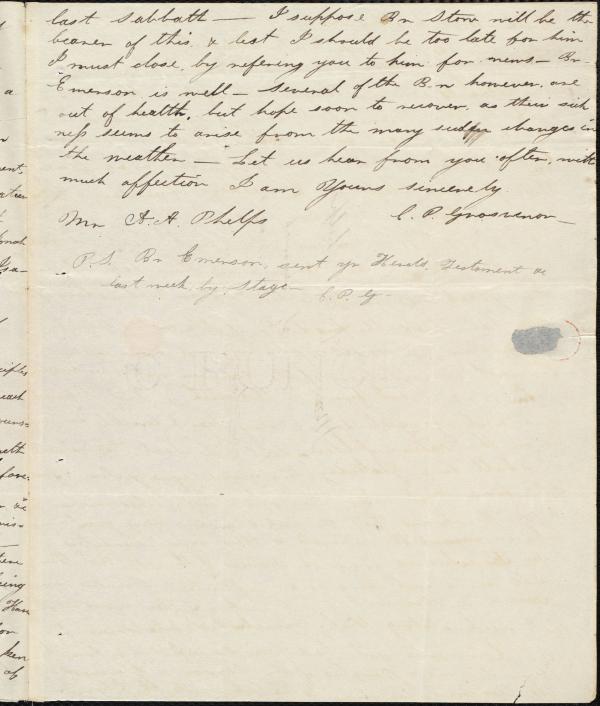 last Sabbath — I suppose Br Stow will be the
bearer of this, & lest I should be too late for him
I must close, by refering you to him for news — Br
Emerson is well — several of the Brn however, are
out of health, but hope soon to recover, as their sick
ness seems to arise from the many sudden changes in
the weather — Let us hear from you often, with
much affection I am Yours sincerely
Mr. A. A. Phelps C. P. Grosvenor —
P.S. Br Emerson, sent yr Heralds, Testament &c
last week, by stage — C. P. G.